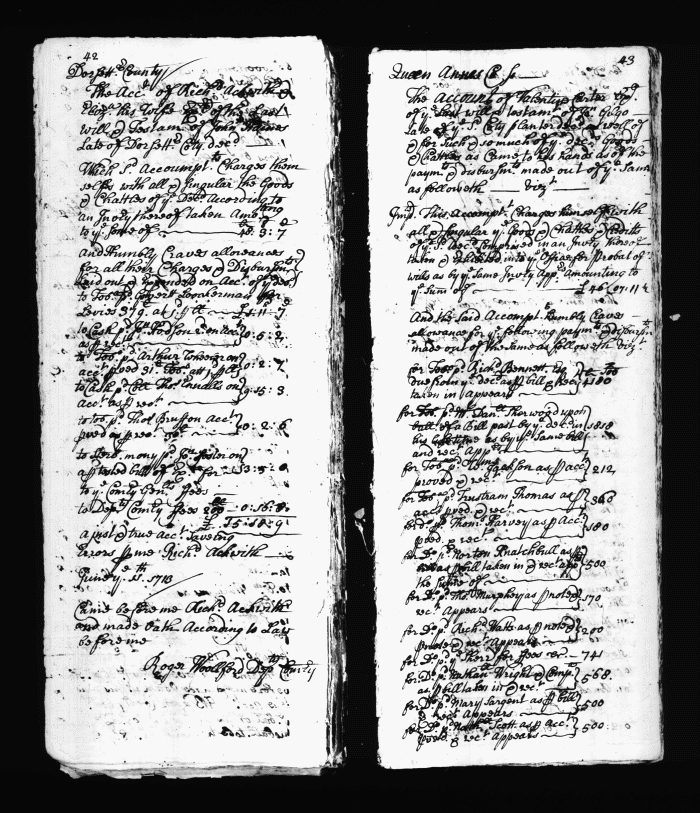 42
Dorsett County
The Acct of Richd Ackwith &
his Wife of the Last
will & Testamt of John
Late of Dorsett Cty decd
Which sd Accoumptts Charges them
selves with all & singular the Goods
& Chattles of ye Decd According to
an Invty thereof taken Amo
to ye sume of 48: 3: 7
And humbly Craves allowances
for all their Charges & Disbursmts
laid out & Expended on Acct of ye decd
to Tobo pd Govert Loockerman
to Cash pd 0: 5: 2
as pr rect
to Tobo pd Arthur on
acct 0: 2: 7
to Cash pd Coll Thos Ennalls on
Acct as pr rect 9: 15: 3
to tobo pd Thos Acct
prved as pr rec
to ferd mony pd foster on
attested bill of 3: 5: 0
to ye Comty Genll fees
to Depty Comty fees 0: 16: 8
15: 18: 9
a just & true Acct saveing
Errors pr me Richd Ackwith
June ye 11th 1713
Came before me Richd Ackwith
and made Oath According to Law
before me
Roger Woolford Depty Comty
43
Queen Annes Co Ss
The Account of Valentyn Carter Exr
of ye Last will & testamt of
Late of ye sd Cty planter decd as well of
& for such & so much of ye decd Goods
& chattles as Came to his hands as of the
paymt & disbursmt made out of ye same
as followeth Vizt
Imp. This Accomptt Charges himself with
all & singular ye Goods & Chattles & Credits
of ye sd decd Comprised in an Invty thereof
taken & Exhibited into ye Office for Probat of
wills as by ye same Invty Appr Amounting to
ye sum of £46:07:11¼
And the said Accomptt humbly Craves
allowance for ye following paymts & disbursmts
made out of the same as followeth Vizt
for Tobo pd Richd Bennett Esq lb Tob
due from ye decd as pr bill & Rect 4180
taken in appears
for Tobo pd Wm Danll Sherwood upon
ball: of a Bill past by ye decd in 1818
his life time as by ye same bill
and rect Appr
for Tobo pd Jackson as pr acct 212
proved & rect
for Tobo pd Trustram Thomas as pr
acct prved & rect 368
for do pd Thoms Harvey as pr Acct
prved & rect 180
for Do pd Norton Knatchbull as pr
bill taken in & rect app 500
the sume of
for Do pd Thos Murphey as pr note & 170
rect Appears
for Do pd Richd Watts as pr note & 200
rect Appears
for Do pd ye Sherr for fees 741
for Do pd Nathan Wright & Comp 568
as pr bill taken in & rect
for Do pd Mary Sargent as pr bill
& rect appears 500
for Do pd Scott as pr Acct 500
proved & rect appears